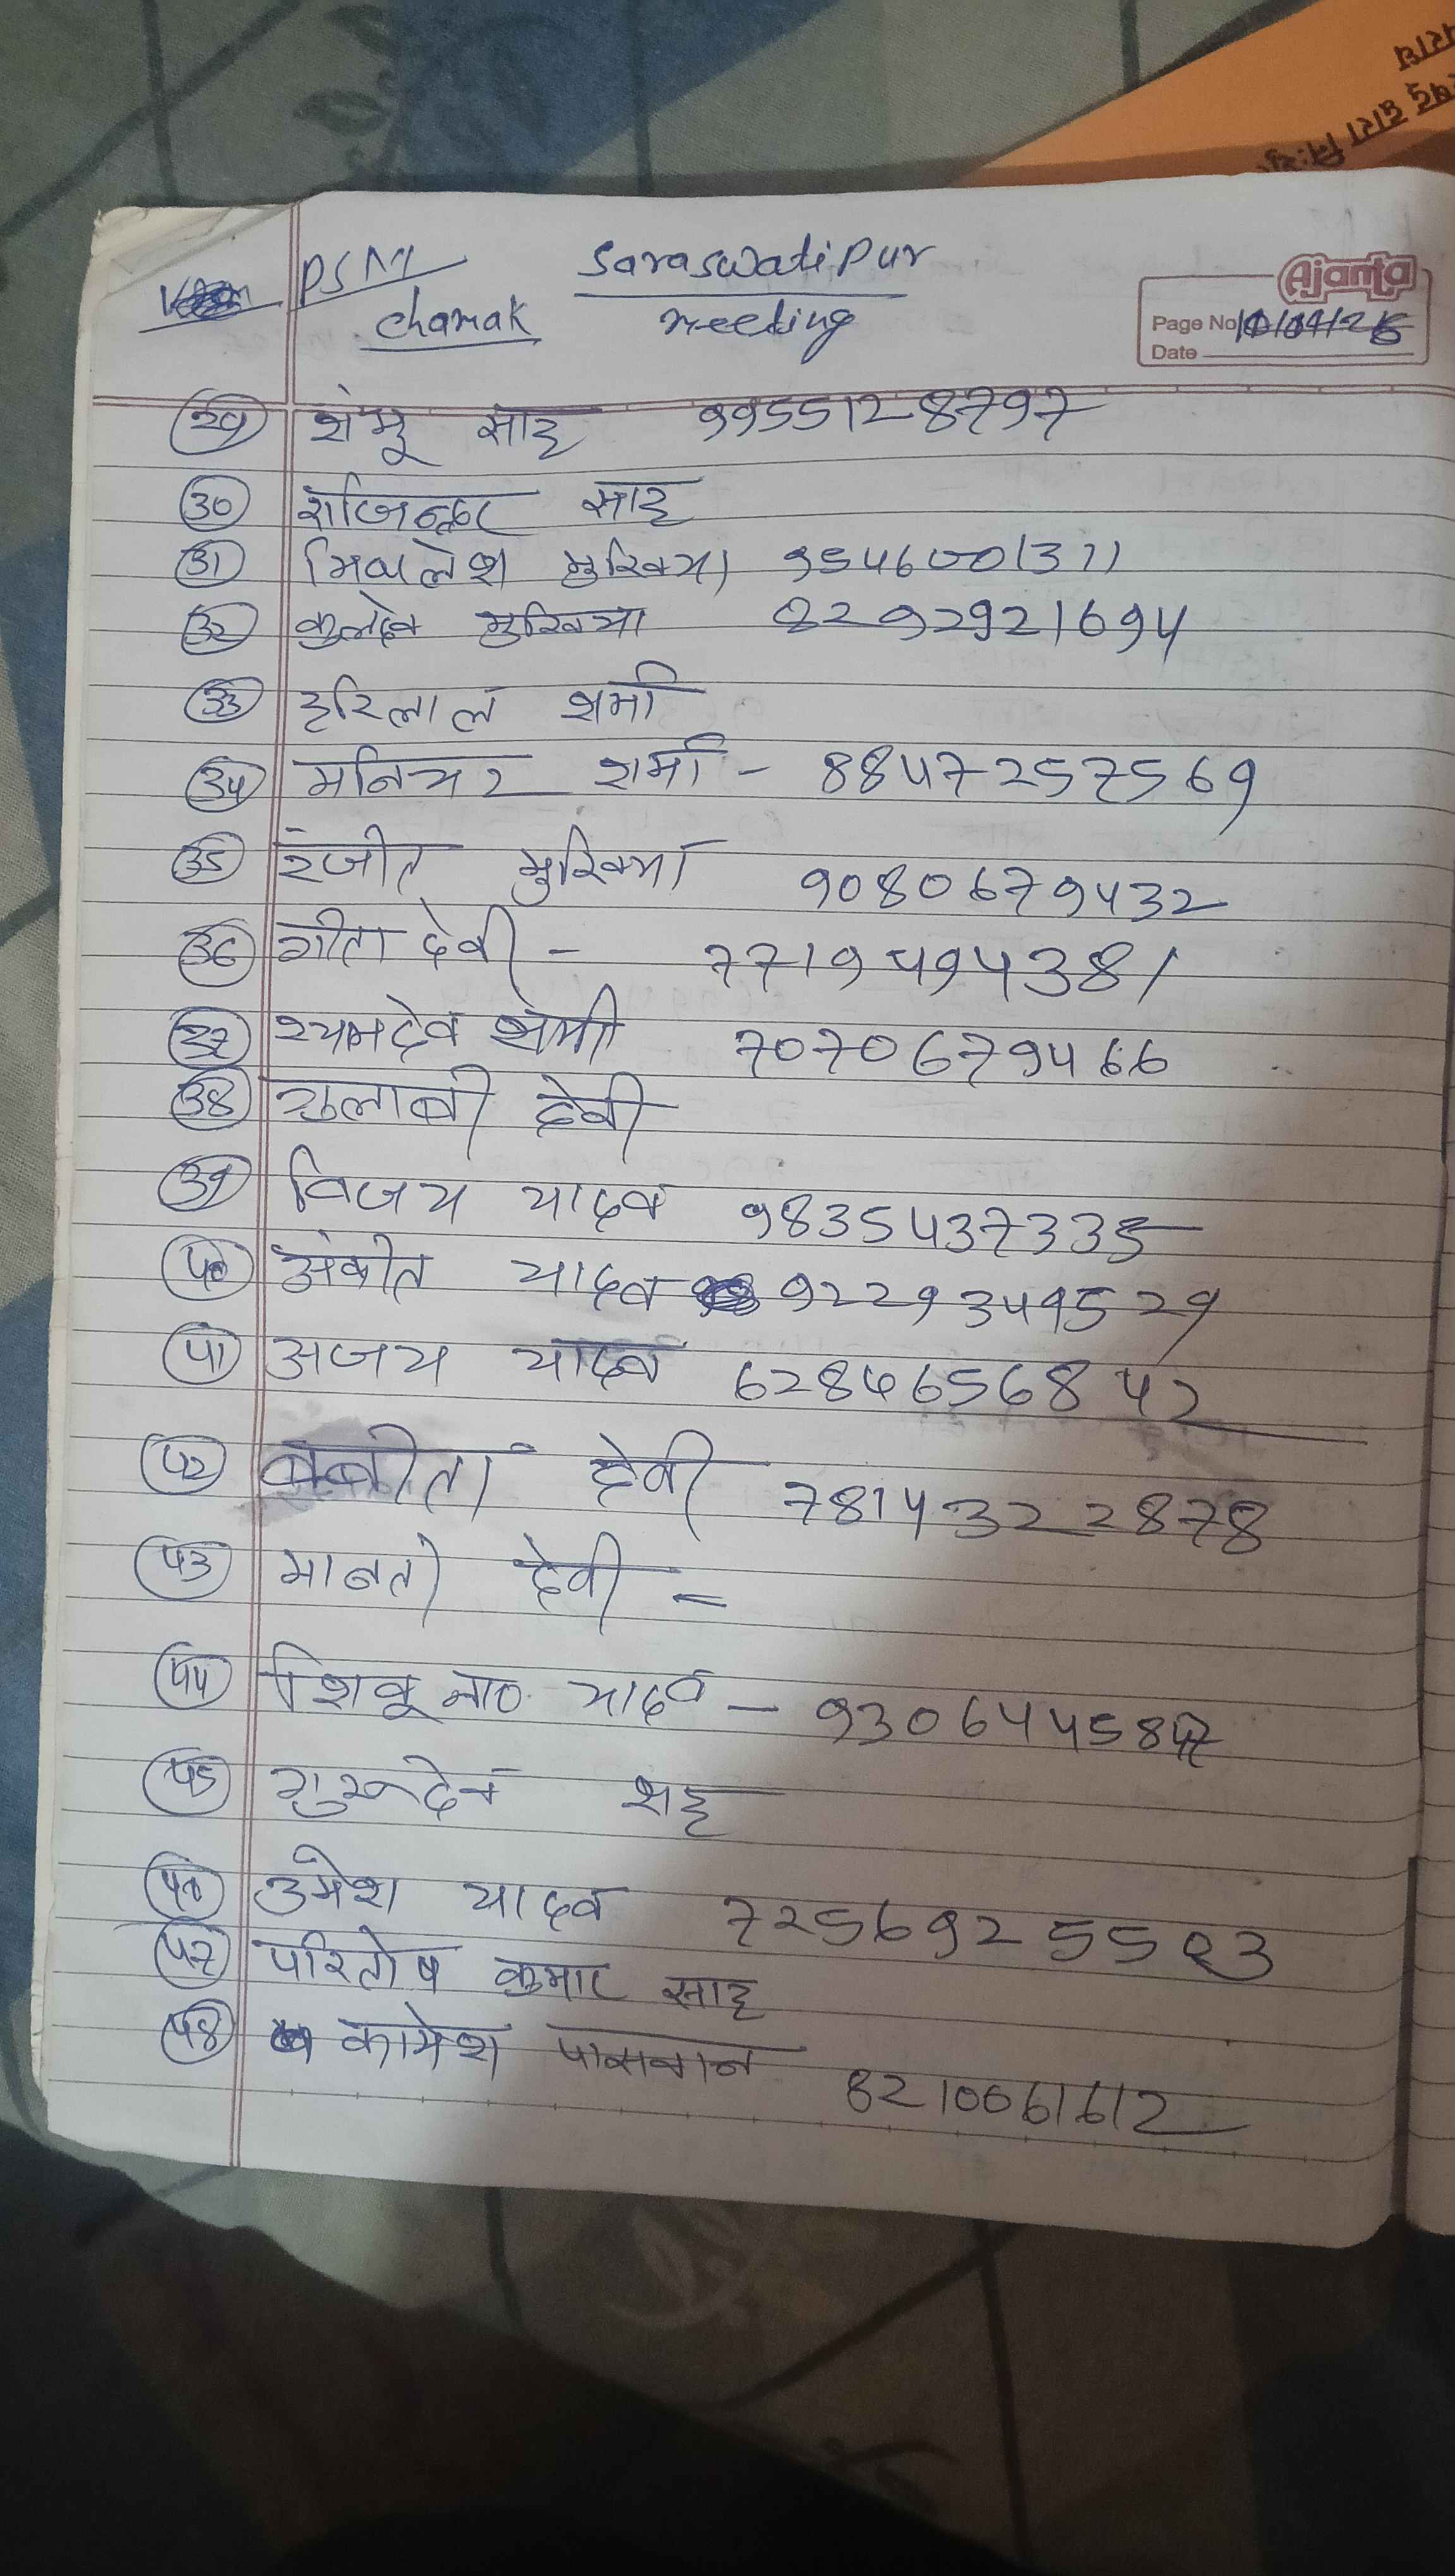 PSM Saraswatipur
chamak meeting
Ajanta
Page No.
Date
29 शंभू साह 9955128797
30 राजिन्द्र साह
31 मिथलेश मुखिया 9546001371
32 कुलदेव मुखिया 8292921694
33 हरिलाल शर्मा
34 मनियर शर्मा - 8847257569
35 रंजीत मुखिया 9080679432
36 गीता देवी - 7719494381
37 श्यामदेव शर्मा 7070679466
38 गुलाबी देवी
39 विजय यादव 9835437335
40 अंकीत यादव 9229349529
41 अजय यादव 6284656842
42 बबीता देवी 7814322878
43 मानती देवी =
44 शिबू नाथ यादव - 930644584
45 गुरूदेव शाह
उमेश यादव 7256925593
47 परितोष कुमार साह
48 कामेश पासवान 8210061612